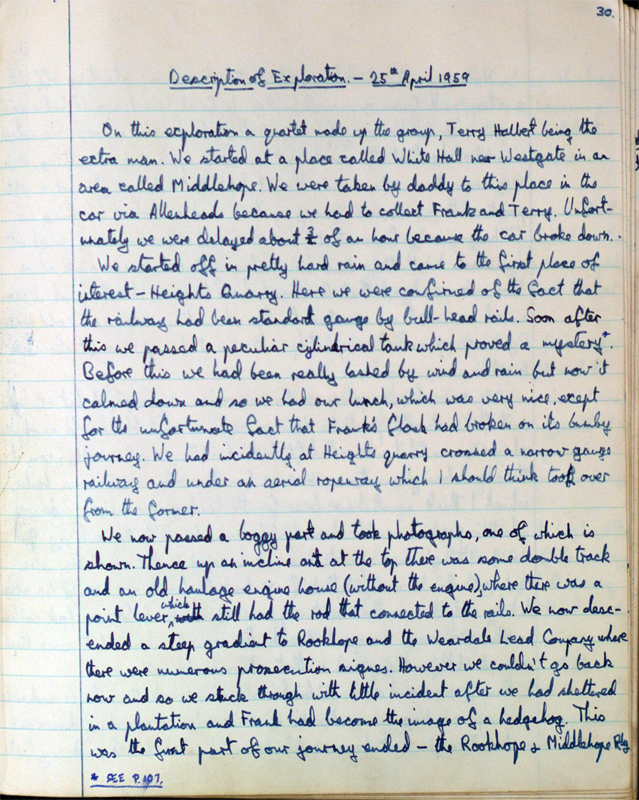 30.
Description of Exploration. - 25th April 1959
On this exploration a quartet made up the group, Terry Halbert being the
extra man. We started at a place called White Hall near Westgate in an
area called Middlehope. We were taken by daddy to this place in the
car via Allenheads because we had to collect Frank and Terry. Unfort-
unately we were delayed about ¾ of an hour because the car broke down.
We started off in pretty hard rain and came to the first place of
interest - Heights Quarry. Here we were confirmed of the fact that
the railway had been standard gauge by bull-head rails. Soon after
this we passed a peculiar cylindrical tank which proved a mystery*.
Before this we had been really lashed by wind and rain but now it
calmed down and so we had our lunch, which was very nice, exept
for the unfortunate fact that Frank's flask had broken on its bumby
journey. We had incidently at Heights quarry crossed a narrow gauge
railway and under an aerial ropeway which I should think took over
from the former.
We now passed a boggy part and took photographs, one of which is
shown. Thence up an incline and at the top there was some double track
and an old haulage engine house (without the engine), where there was a
point lever, which still had the rod that connected to the rails. We now desc-
ended a steep gradient to Rookhope and the Weardale Lead Company where
there were numerous prosecution signes. However we couldn't go back
now and so we stuck through with little incident after we had sheltered
in a plantation and Frank had become the image of a hedgehog. This
was the first part of our journey ended - the Rookhope & Middlehope Rly.
* SEE P.107.